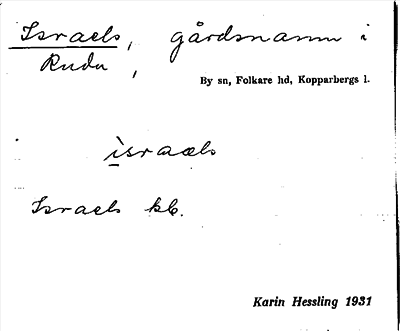 Israels, gårdsnamn i
Rudu,
By sn, Folkare hd, Kopparbergs l.
israels
Israels kb.
Karin Hessling 1931